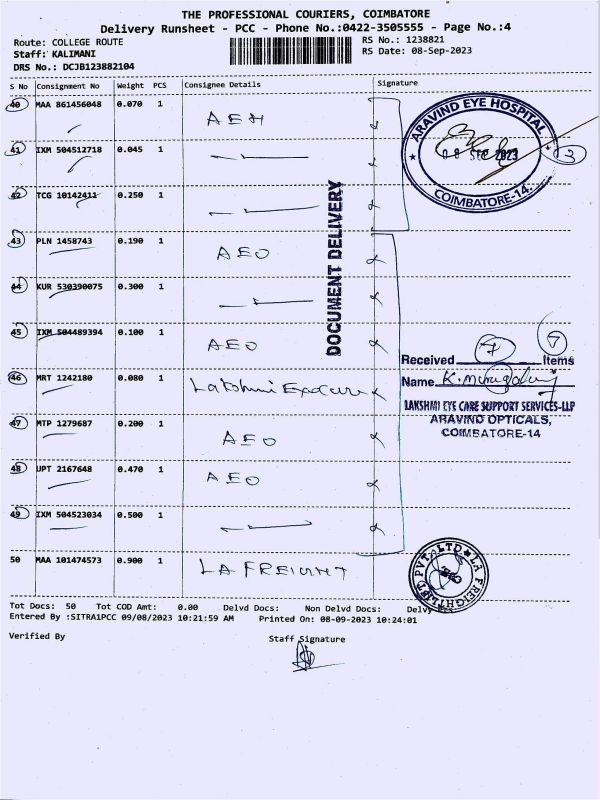 THE PROFESSIONAL COURIERS, COIMBATORE
Delivery Runsheet - PCC - Phone No.:0422-3505555 - Page No.:4
Route: COLLEGE ROUTE
RS No.: 1238821
Staff: KALIMANI
RS Date: 08-Sep-2023
DRS No.: DCJB123882104
S No Consignment No Weight PCS Consignee Details Signature
40 MAA 861456048 0.070 1 AEH
41 IXM 504512718 0.045 1
42 TCG 10142411 0.250 1
43 PLN 1458743 0.190 1 AEO
44 KUR 530390075 0.300 1
45 IXM 504489394 0.100 1 AEO
46 MRT 1242180 0.080 1 Lakshmi
47 MTP 1279687 0.200 1 AEO
48 UPT 2167648 0.470 1 AEO
49 IXM 504523034 0.500 1
50 MAA 101474573 0.900 1 LA FREIGHT
ARAVIND EYE HOSPITAL
08 SEP 2023
COIMBATORE-14.
3
DOCUMENT DELIVERY
7
Received 7 Items
Name K.
LAKSHMI EYE CARE SUPPORT SERVICES-LLP
ARAVIND OPTICALS,
COIMBATORE-14
LA FREIGHTLIFT PVT. LTD
Tot Docs: 50 Tot COD Amt: 0.00 Delvd Docs: Non Delvd Docs: Delvy
Entered By :SITRA1PCC 09/08/2023 10:21:59 AM Printed On: 08-09-2023 10:24:01
Verified By Staff Signature